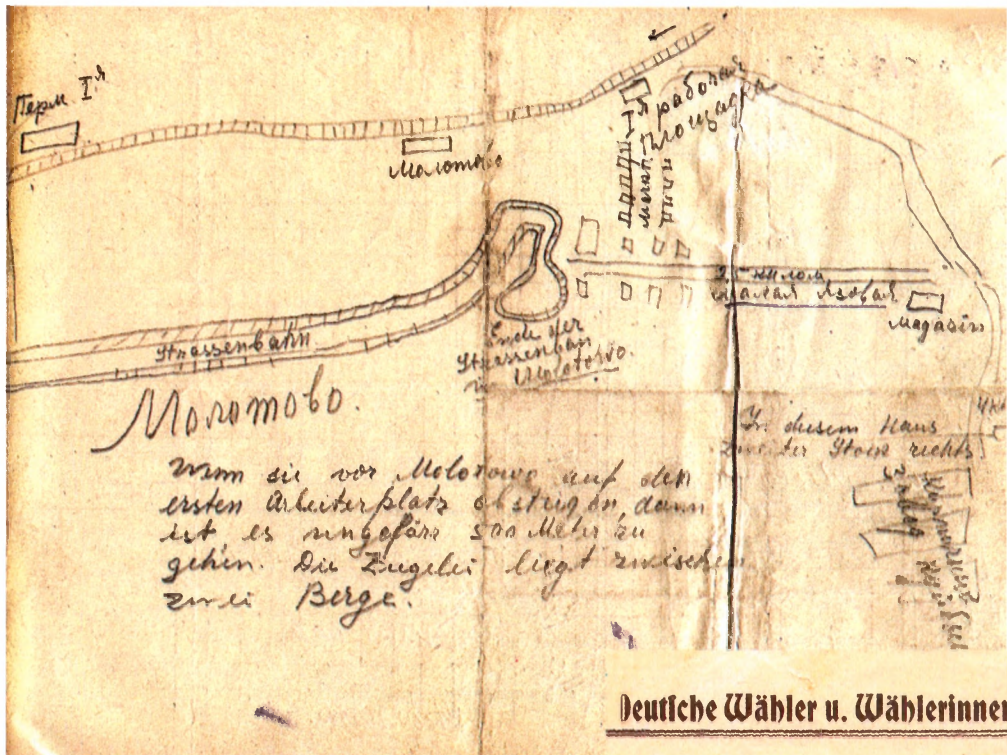 Перм I я
Молотово
I я рабочая
площадка
Малая Язовая
Magasin
Strassenbahn
Ende der
Strassenban
in Molotowo.
Молотово.
In diesem Haus
zweiter Stock rechts
Wenn sie vor Molotowo auf den
ersten Arbeiterplatz absteigen, dann
ist es ungefärr 500 Meter zu
gehen. Die Ziegelei liegt zwischen
zwei Berge.
Кирпичный
завод
Deutsche Wähler u. Wählerinnen